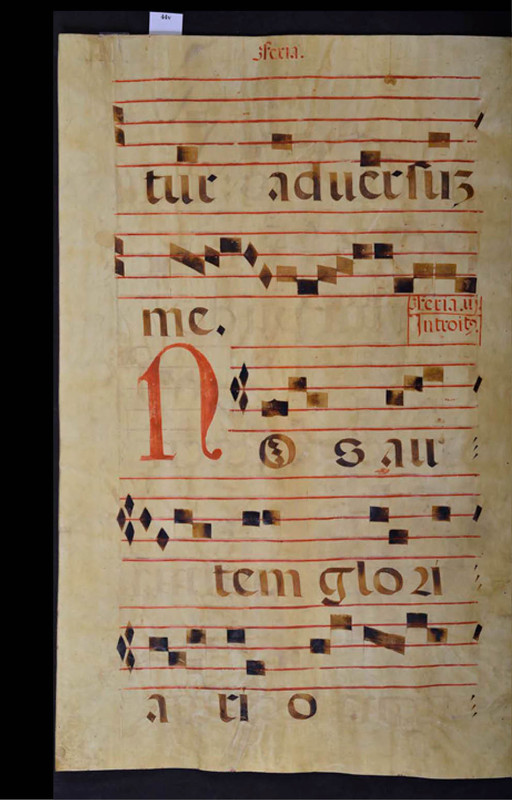 44v
feria.
tur aduersuʒ
me.
feria.ii
Introitꝰ.
Nos au
tem gloꝛi
a ri o